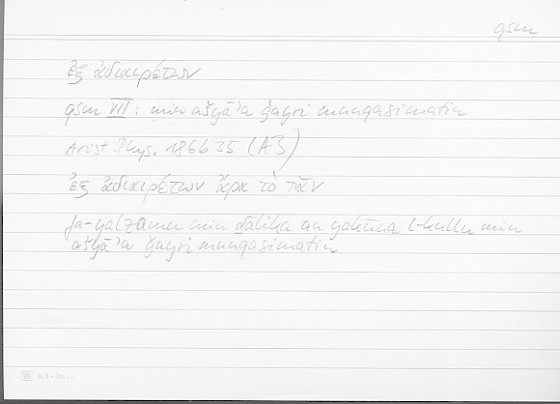 qsm
ἐξ ἀδιαιρέτων
qsm VII: min ašyāʾa ġayri munqasimatin
Arist. Phys. 186b35 (A3)
ἐξ ἀδιαιρέτων ἄρα τὸ πᾶν
fa-yalzamu min ḏālika an yakūna l-kullu min
ašyāʾa ġayri munqasimatin